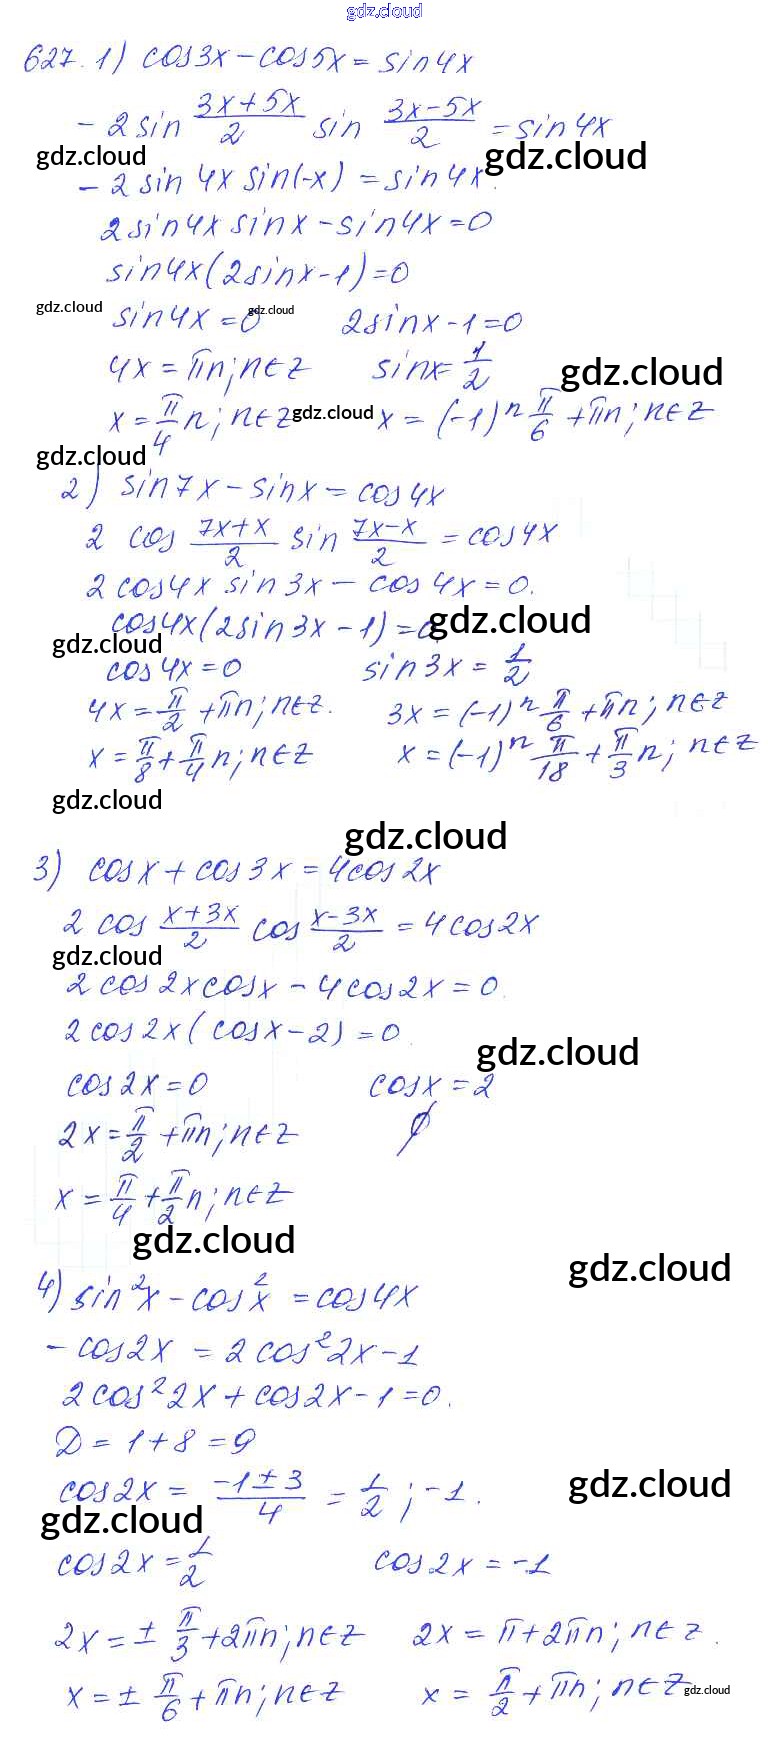 gdz.cloud
627. 1) cos3x - cos5x = sin4x
-2 sin (3x+5x)/2 sin (3x-5x)/2 = sin4x
gdz.cloud gdz.cloud
-2 sin 4x sin(-x) = sin4x.
2sin4x sinx - sin4x = 0
sin4x(2sinx-1) = 0
gdz.cloud gdz.cloud
sin4x = 0 2sinx - 1 = 0
4x = πn; n∈Z sinx = 1/2 gdz.cloud
x = π/4 n; n∈Z gdz.cloud x = (-1)^n π/6 + πn; n∈Z
gdz.cloud
2) sin7x - sinx = cos4x
2 cos (7x+x)/2 sin (7x-x)/2 = cos4x
2 cos4x sin3x - cos4x = 0.
cos4x(2sin3x - 1) = 0 gdz.cloud
gdz.cloud
cos4x = 0 sin3x = 1/2
4x = π/2 + πn; n∈Z. 3x = (-1)^n π/6 + πn; n∈Z
x = π/8 + π/4 n; n∈Z x = (-1)^n π/18 + π/3 n; n∈Z
gdz.cloud
gdz.cloud
3) cosx + cos3x = 4cos2x
2 cos (x+3x)/2 cos (x-3x)/2 = 4cos2x
gdz.cloud
2 cos2x cosx - 4cos2x = 0.
2 cos2x(cosx - 2) = 0.
gdz.cloud
cos2x = 0 cosx = 2
2x = π/2 + πn; n∈Z ∅
x = π/4 + π/2 n; n∈Z
gdz.cloud gdz.cloud
4) sin²x - cos²x = cos4x
-cos2x = 2cos²2x - 1
2cos²2x + cos2x - 1 = 0.
D = 1 + 8 = 9
cos2x = (-1±3)/4 = 1/2; -1. gdz.cloud
gdz.cloud
cos2x = 1/2 cos2x = -1
2x = ± π/3 + 2πn; n∈Z 2x = π + 2πn; n∈Z.
x = ± π/6 + πn; n∈Z x = π/2 + πn; n∈Z gdz.cloud